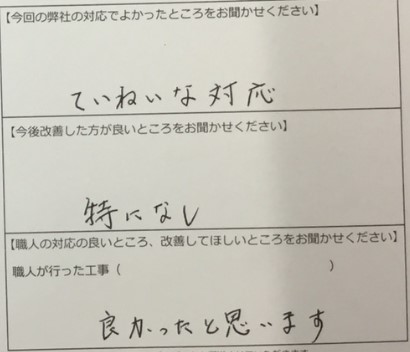 【今回の弊社の対応でよかったところをお聞かせください】
ていねいな対応
【今後改善した方が良いところをお聞かせください】
特になし
【職人の対応の良いところ、改善してほしいところをお聞かせください】
職人が行った工事（　　　　　　　　　　　　　　　）
良かったと思います